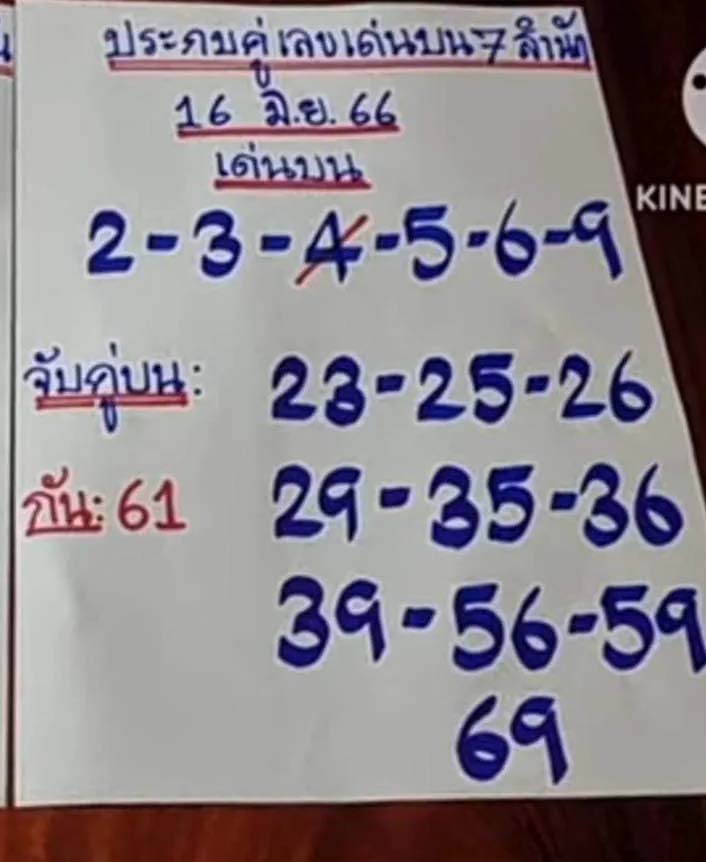 ประกบคู่เลขเด่นบน7สำนัก
16 มิ.ย. 66
เด่นบน
2-3-4-5-6-9
จับคู่บน: 23-25-26
กัน: 61 29-35-36
39-56-59
69
KINE